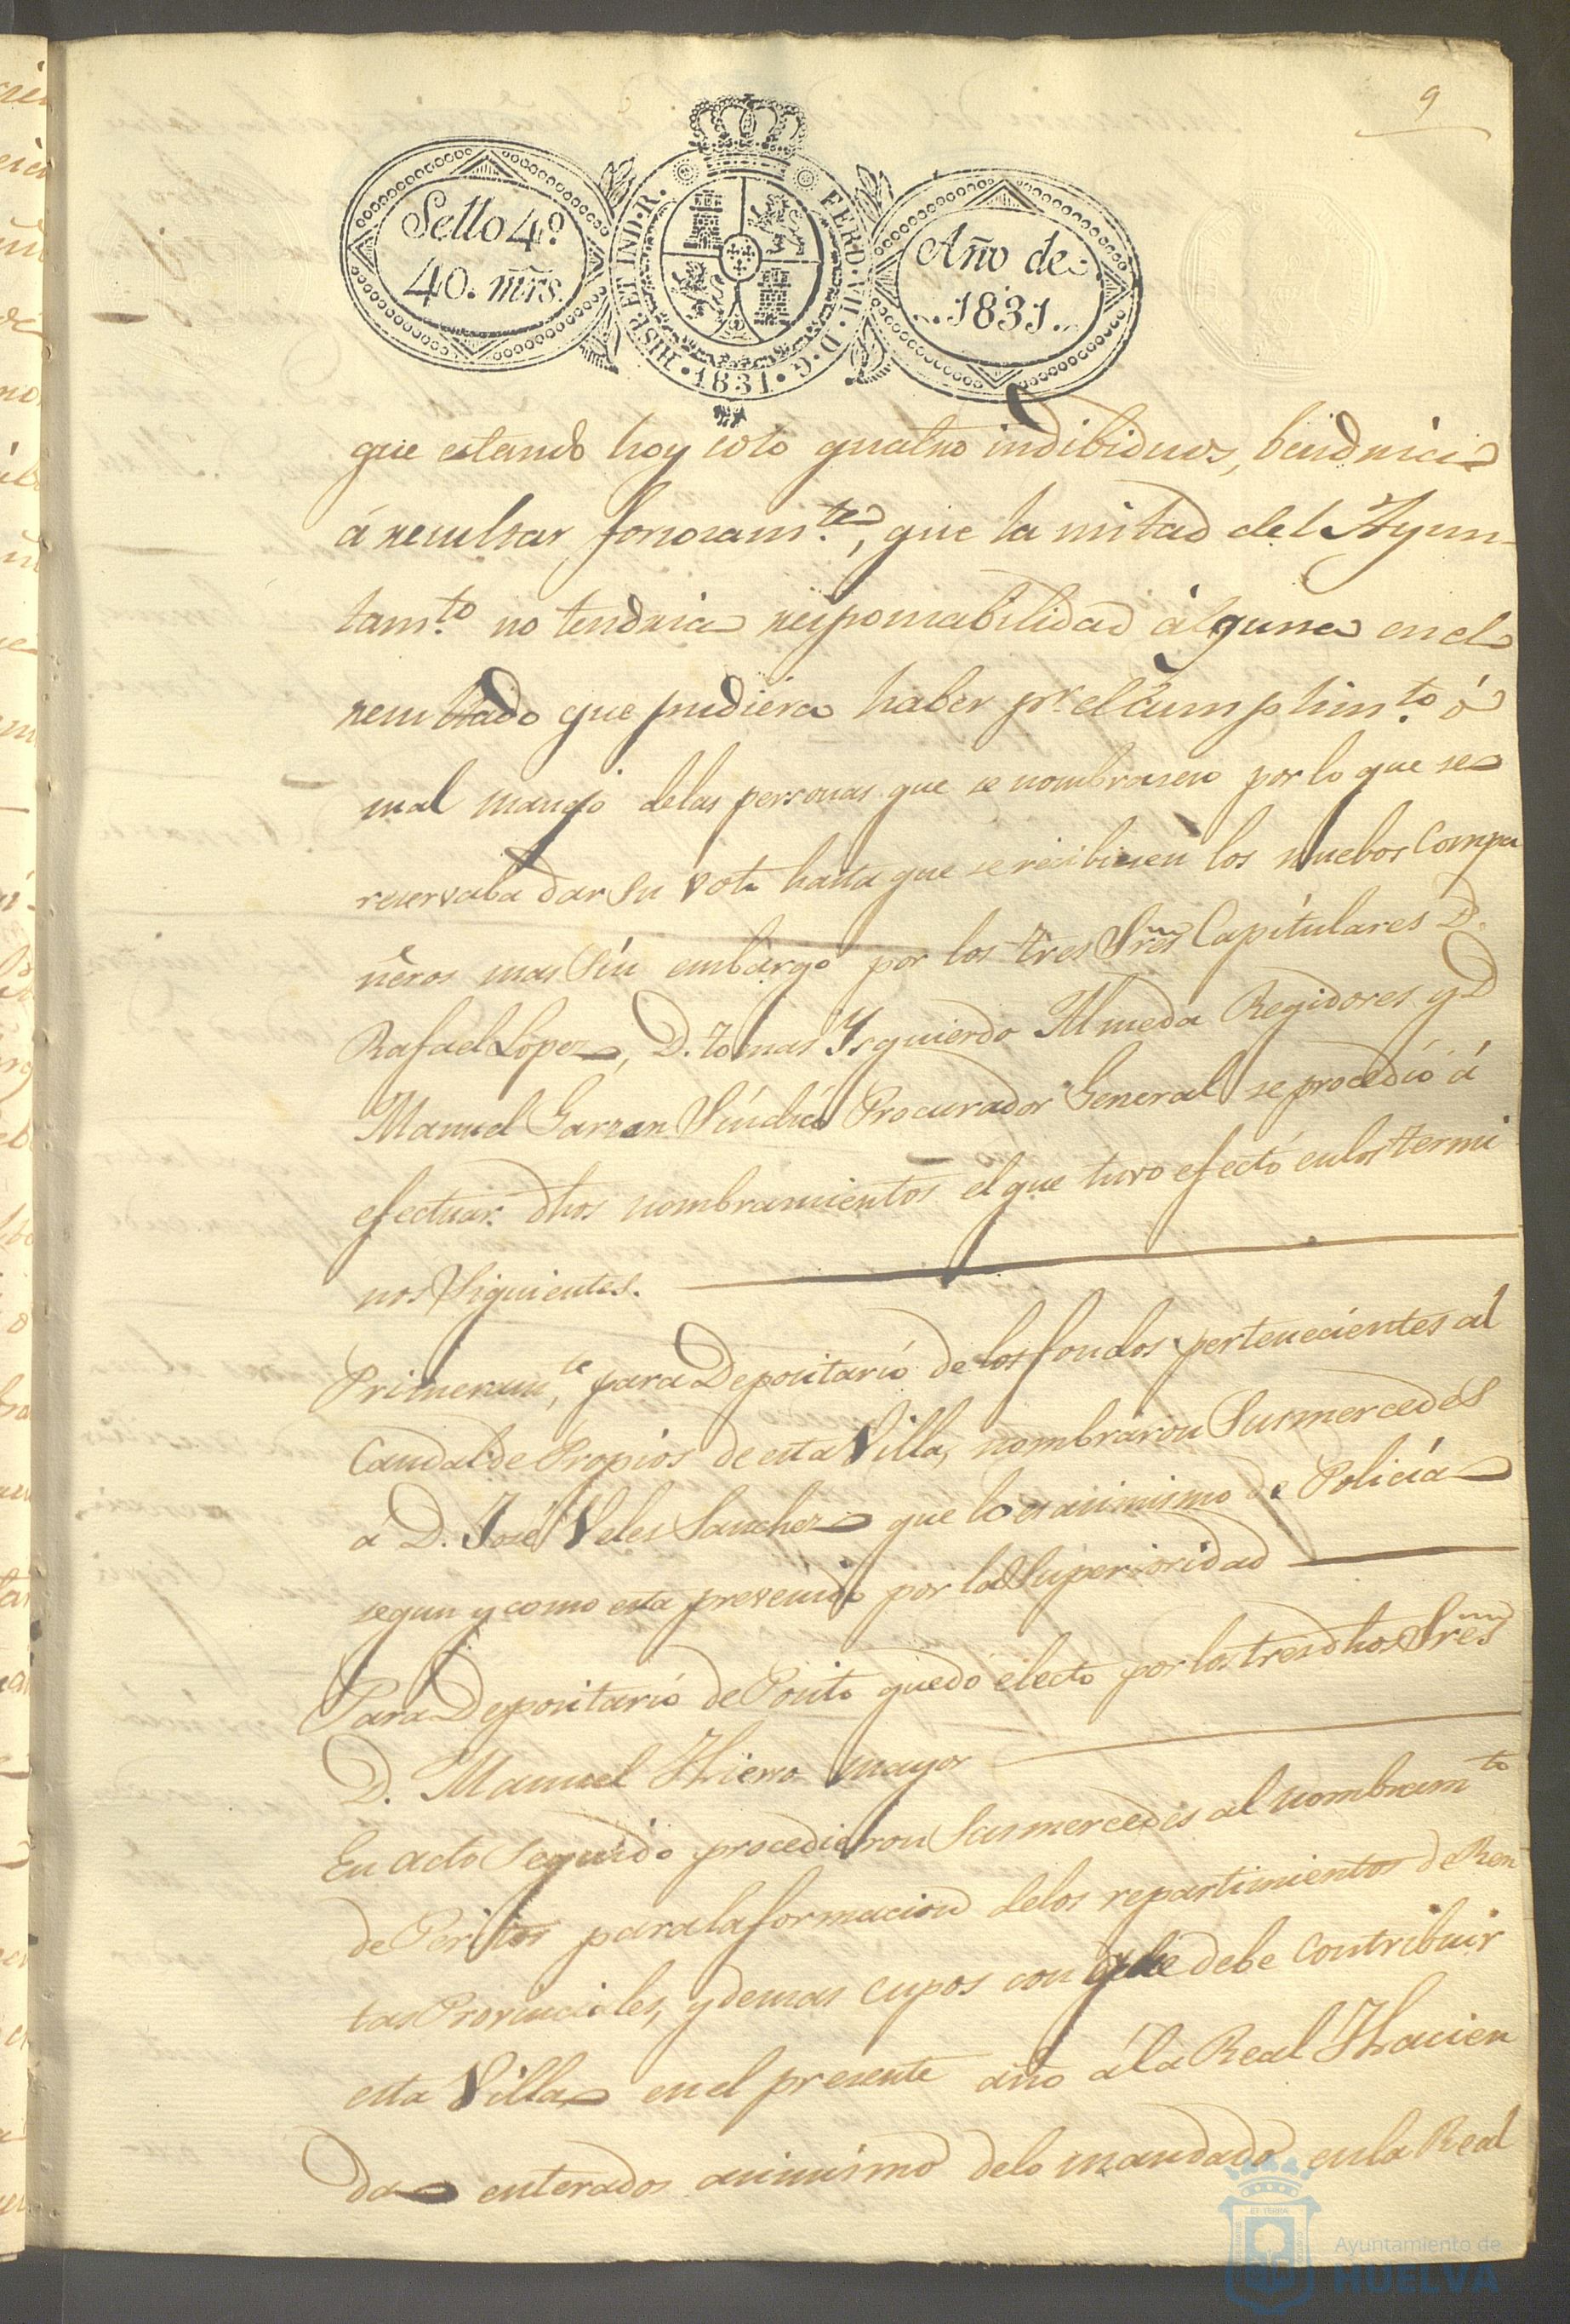 9
Sello 4º
40. mrs.
HISP. ET IND. R.
FERD. VII. D. G.
1831
Año de
1831
que estando hoy solo quatro indibiduos, bendria
á resultar forzosam.te, que la mitad del Ayun-
tam.to no tendria responsabilidad alguna en el
resultado que pudiera haber pr. el cumplim.to ó
mal manejo delas personas que se nombrasen por lo que se
reservaba dar su voto hasta que se recibiesen los nuebos Compa
ñeros mas Sin embargo por los tres Sres Capitulares D.
Rafael Lopez, D. Tomas Ysquierdo Almeda Regidores y D
Manuel Garzon Sindico Procurador General se procedió á
efectuar dhos nombramientos el que tuvo efecto en los termi
nos Siguientes.
Primeram.te, para Depositario de los fondos pertenecientes al
Caudal de Propios de esta Villa, nombraron Susmercedes
á D. José Veles Sanchez que lo es asimismo de Policia
segun y como esta prevenido por la Superioridad
Para Depositario de Posito quedó electo por los tres dhos Sres
D. Manuel Hierro mayor
En acto Seguido procedieron Susmercedes al nombram.to
de Peritos para la formacion delos repartimientos de Ren
tas Provinciales, y demas cupos con que debe Contribuir
esta Villa en el presente año á la Real Hacien
da enterados asimismo delo mandado en la Real
Ayuntamiento de
HUELVA